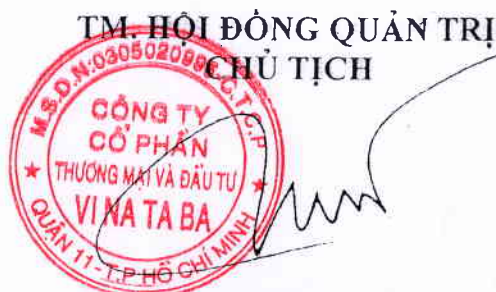 TM. HỘI ĐỒNG QUẢN TRỊ
CHỦ TỊCH
M.S.D.N:0305020996 C.T.C.P
CÔNG TY
CỔ PHẦN
THƯƠNG MẠI VÀ ĐẦU TƯ
VINATABA
QUẬN 11-T.P HỒ CHÍ MINH